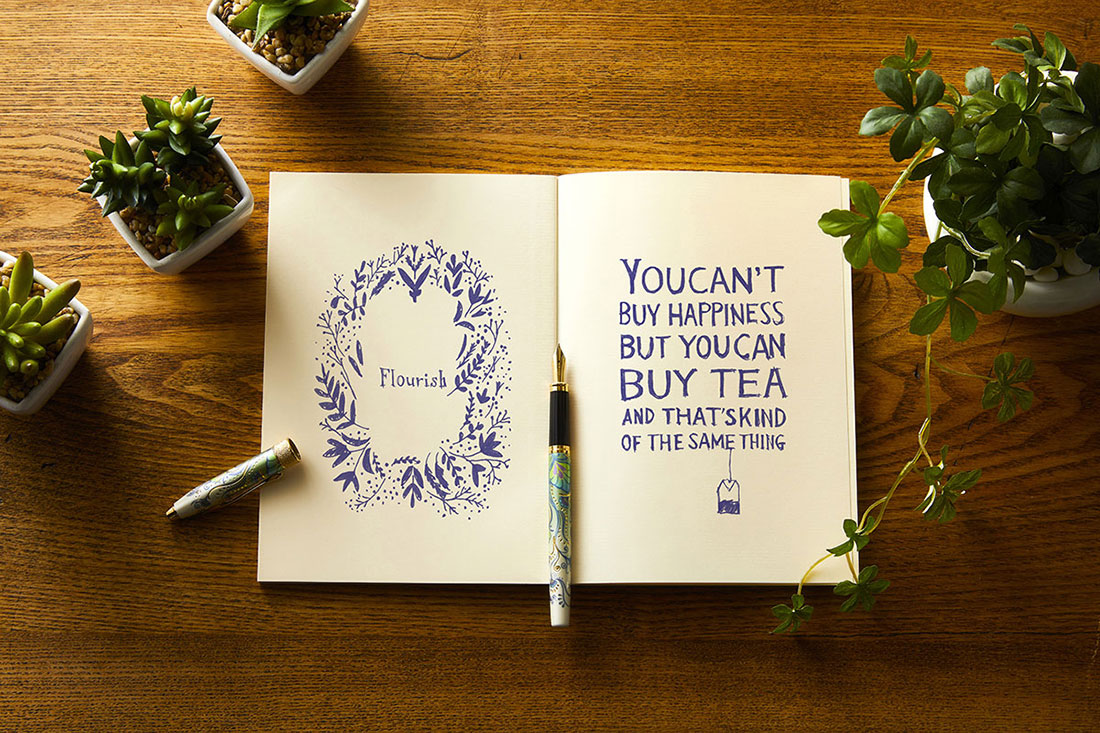 Flourish
YOU CAN'T
BUY HAPPINESS
BUT YOU CAN
BUY TEA
AND THAT'S KIND
OF THE SAME THING